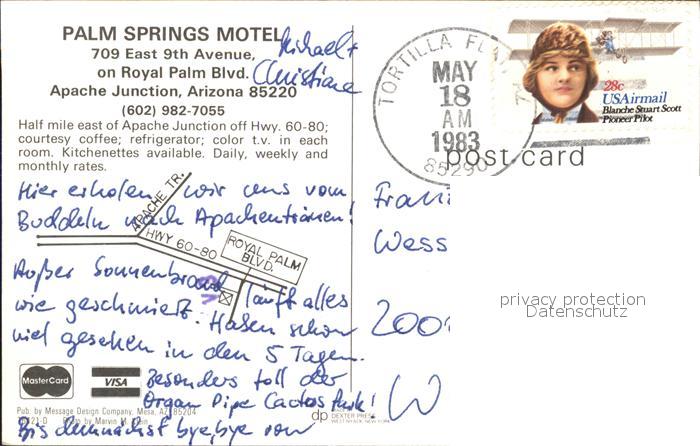 PALM SPRINGS MOTEL
709 East 9th Avenue,
on Royal Palm Blvd.
Apache Junction, Arizona 85220
(602) 982-7055
Half mile east of Apache Junction off Hwy. 60-80;
courtesy coffee; refrigerator; color t.v. in each
room. Kitchenettes available. Daily, weekly and
monthly rates.
Michael +
Christiane
TORTILLA FLA
MAY
18
AM
1983
85290
28c
USAirmail
Blanche Stuart Scott
Pioneer Pilot
post card
Hier erholen wir uns vom
Buddeln nach Apachentränen!
APACHE TR.
HWY 60-80
ROYAL PALM
BLVD.
Außer Sonnenbrand läuft alles
wie geschmiert. Haben schon
viel gesehen in den 5 Tagen.
Besonders toll der
Organ Pipe Cactus Park!
Bis demnächst bye, bye
MasterCard
VISA
Pub. by Message Design Company, Mesa, AZ 85204
by Marvin
dp DEXTER PRESS
WEST NYACK, NEW YORK
Fran
Wess
200
W
privacy protection
Datenschutz